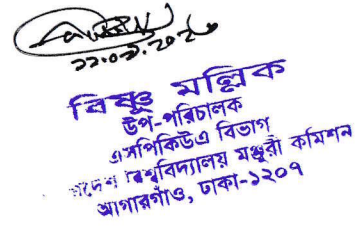 বিষ্ণু মল্লিক
উপ-পরিচালক
এসপিকিউএ বিভাগ
বিশ্ববিদ্যালয় মঞ্জুরী কমিশন
আগারগাঁও, ঢাকা-১২০৭